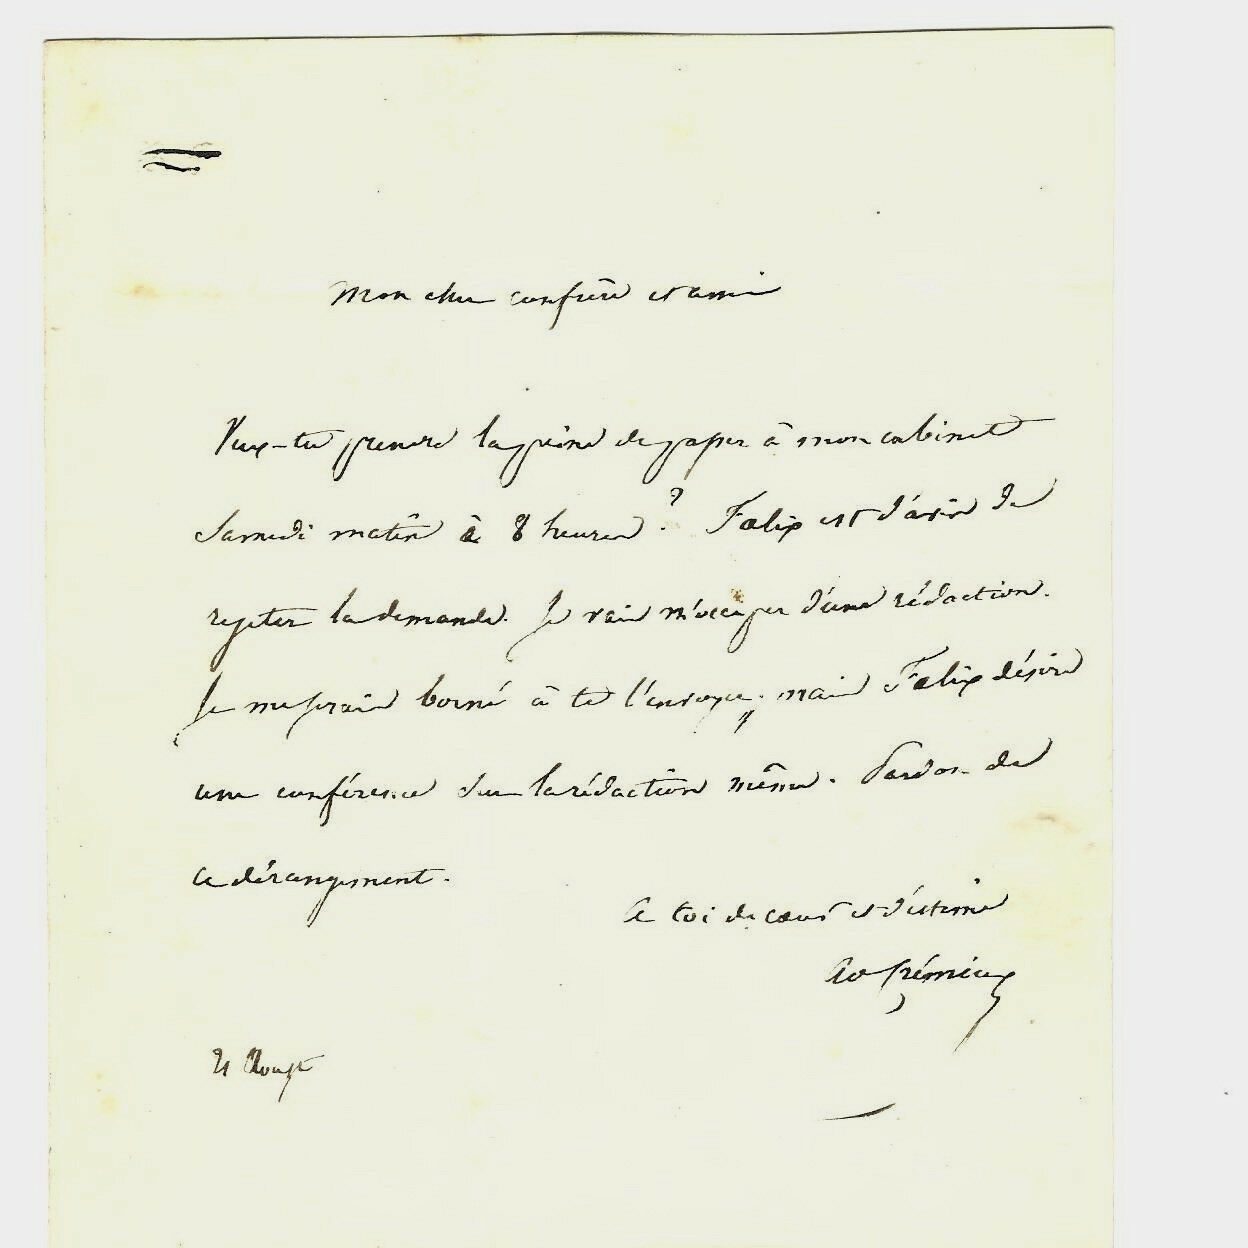 Mon cher confrère et ami
Veux-tu prendre la peine de passer à mon cabinet
Samedi matin à 8 heures ? Félix est d'avis de
rejeter la demande. Je vais m'occuper d'une rédaction.
Je me serais borné à te l'envoyer ; mais Félix désire
une conférence sur la rédaction même. Pardon de
ce dérangement.
A toi de cœur et d'estime
Ad Crémieux
21 Aoust